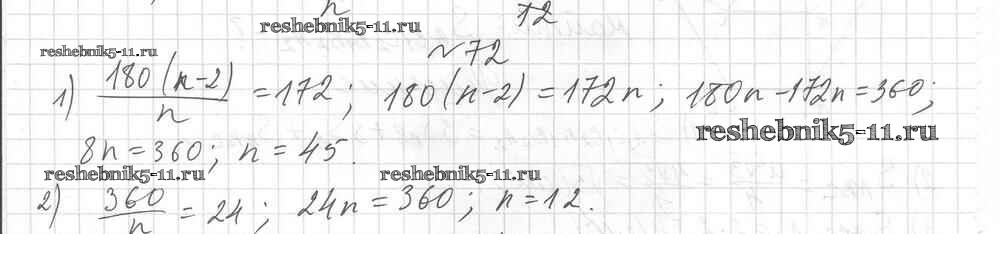 n 12
reshebnik5-11.ru
reshebnik5-11.ru
№72
1) 180(n-2)/n = 172; 180(n-2) = 172n; 180n-172n=360;
reshebnik5-11.ru
8n=360; n=45.
reshebnik5-11.ru reshebnik5-11.ru
2) 360/n = 24; 24n=360; n=12.